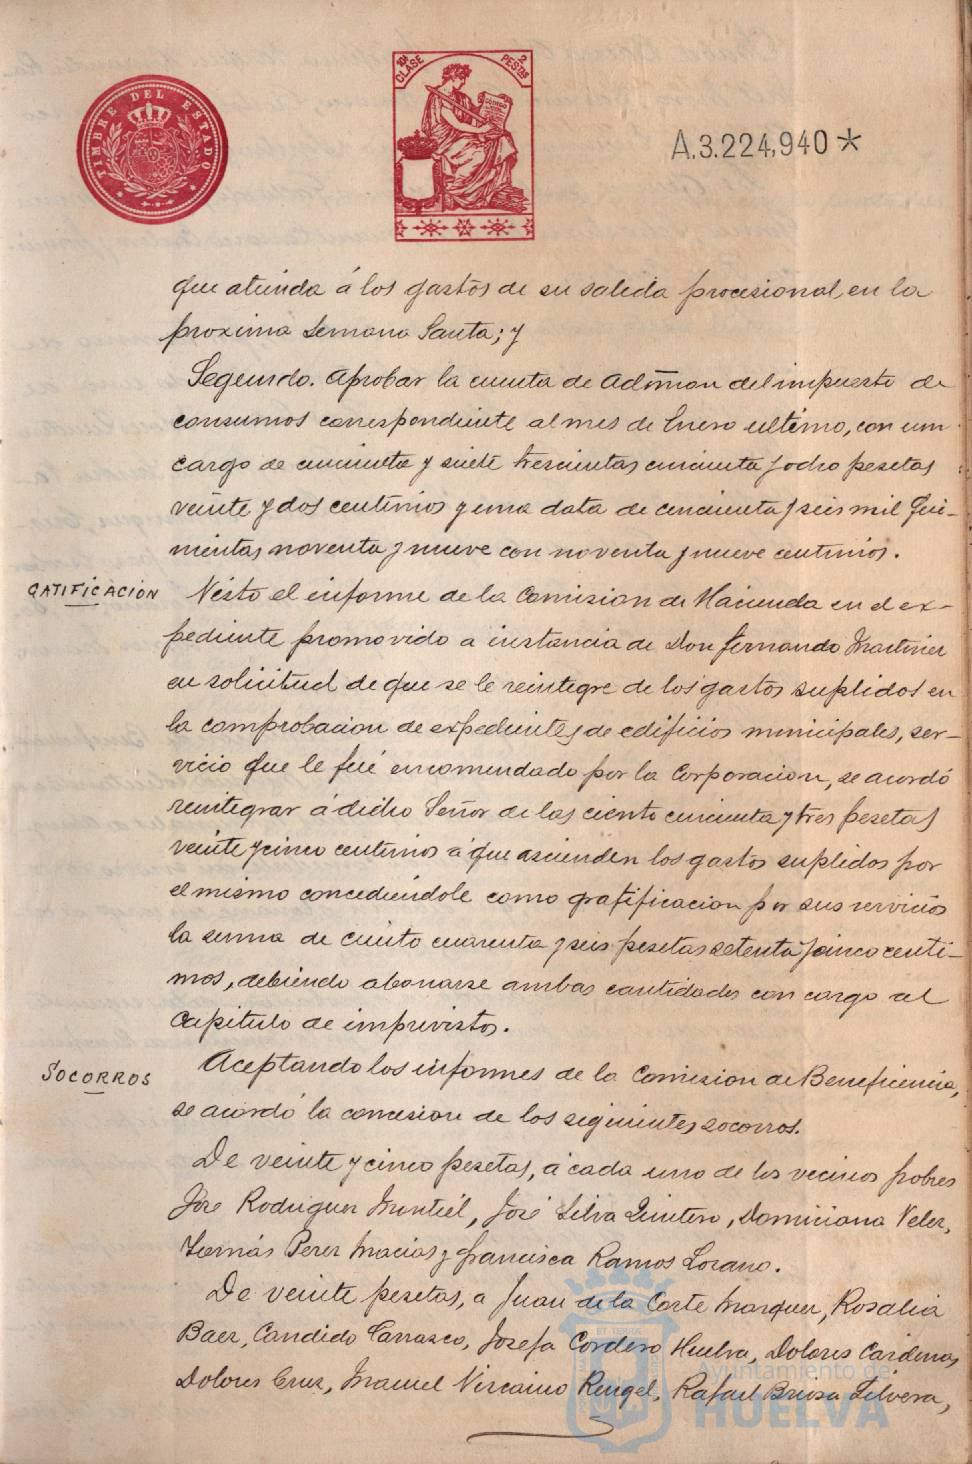 TIMBRE DEL ESTADO
10ª CLASE 2 PESTAS
A.3.224,940 *
que atienda á los gastos de su salida procesional en la
proxima Semana Santa; y
Segundo. Aprobar la cuenta de Admon del impuesto de
consumos correspondiente al mes de Enero ultimo, con un
cargo de cincuenta y siete trescientas cincuenta y ocho pesetas
veinte y dos centimos y una data de cincuenta y seis mil qui-
nientas noventa y nueve con noventa y nueve centimos.
GATIFICACIÓN
Visto el informe de la Comision de Hacienda en el ex-
pediente promovido a instancia de Don Fernando Martinez
en solicitud de que se le reintegre de los gastos suplidos en
la comprobacion de expedientes de edificios municipales, ser-
vicio que le fué encomendado por la Corporacion, se acordó
reintegrar á dicho Señor de las ciento cincuenta y tres pesetas
veinte y cinco centimos á que ascienden los gastos suplidos por
el mismo concediéndole como gratificacion por sus servicios
la suma de ciento cuarenta y seis pesetas setenta y cinco centi-
mos, debiendo abonarse ambas cantidades con cargo al
Capitulo de imprevistos.
SOCORROS
Aceptando los informes de la Comision de Beneficencia,
se acordó la concesion de los siguientes socorros.
De veinte y cinco pesetas, á cada uno de los vecinos pobres
José Rodriguez Montiel, José Silva Quintero, Domiciana Velez,
Tomás Perez Macias y Francisca Ramos Lozano.
De veinte pesetas, a Juan de la Corte Marquez, Rosalia
Baez, Candido Carrasco, Josefa Cordero Huelva, Dolores Cardenas,
Dolores Cruz, Manuel Vizcaino Rengel, Rafael Brioso Silvera,
Ayuntamiento de
HUELVA